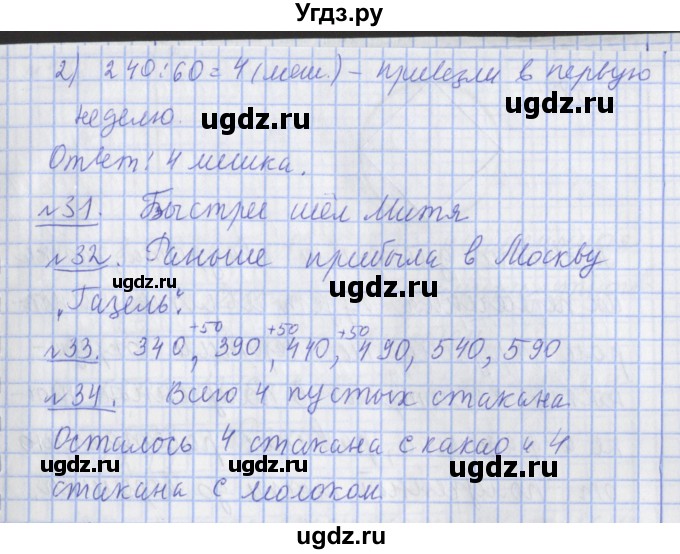 Угдз.ру
2) 240:60=4(меш.) – привезли в первую
неделю.
ugdz.ru ugdz.ru
Ответ: 4 мешка.
№31. Быстрее шёл Митя
№32. Раньше прибыла в Москву
ugdz.ru ugdz.ru
"Газель".
+50 +50 +50
№33. 340, 390, 440, 490, 540, 590
ugdz.ru ugdz.ru
№34. Всего 4 пустых стакана
Осталось 4 стакана с какао и 4
ugdz.ru ugdz.ru ugdz.ru
стакана с молоком
ugdz.ru